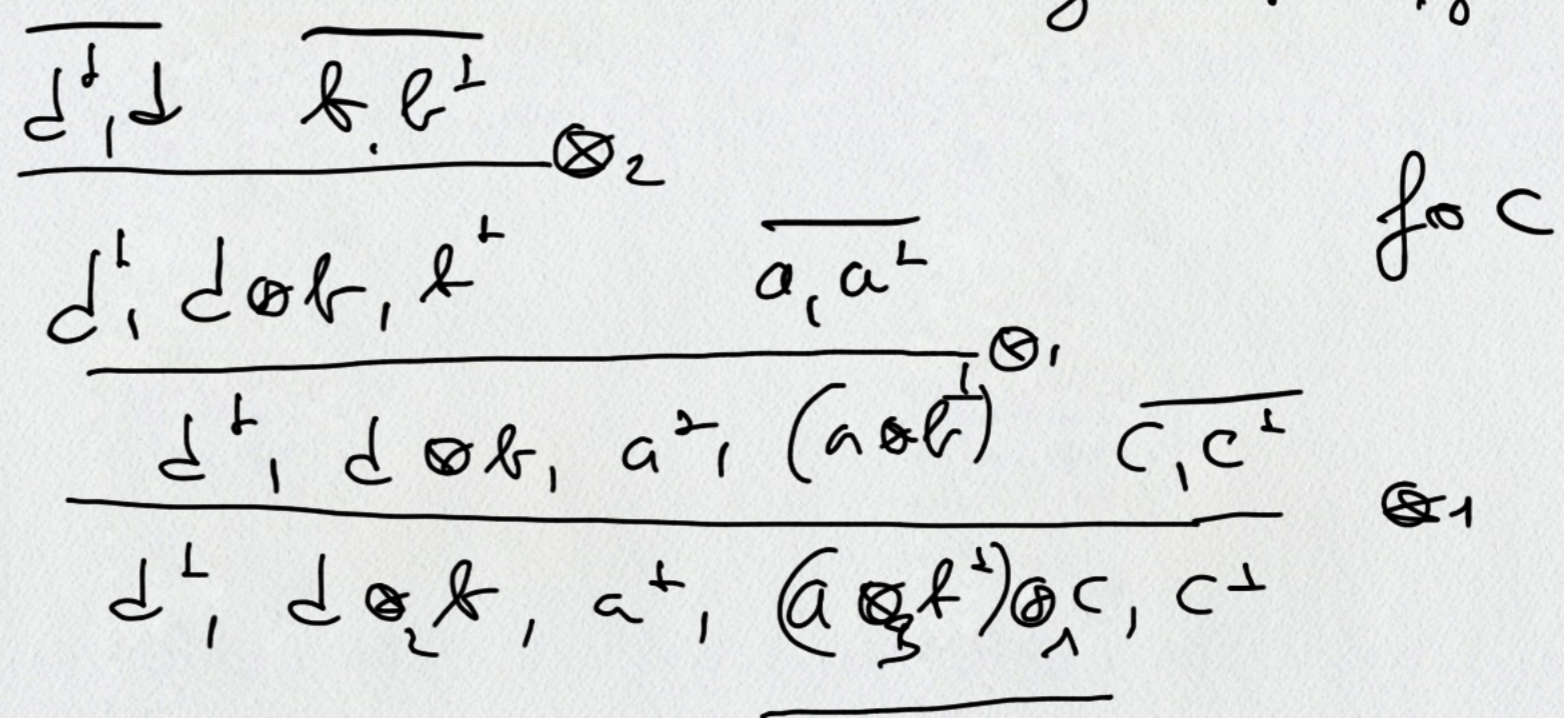 d⊥, d b, b⊥ ⊗2
d⊥, d⊗b, b⊥ a, a⊥ ⊗1
for C
d⊥, d⊗b, a⊥, (a⊗b⊥) C, C⊥ ⊗1
d⊥, d⊗2b, a⊥, (a⊗3b⊥)⊗1C, C⊥